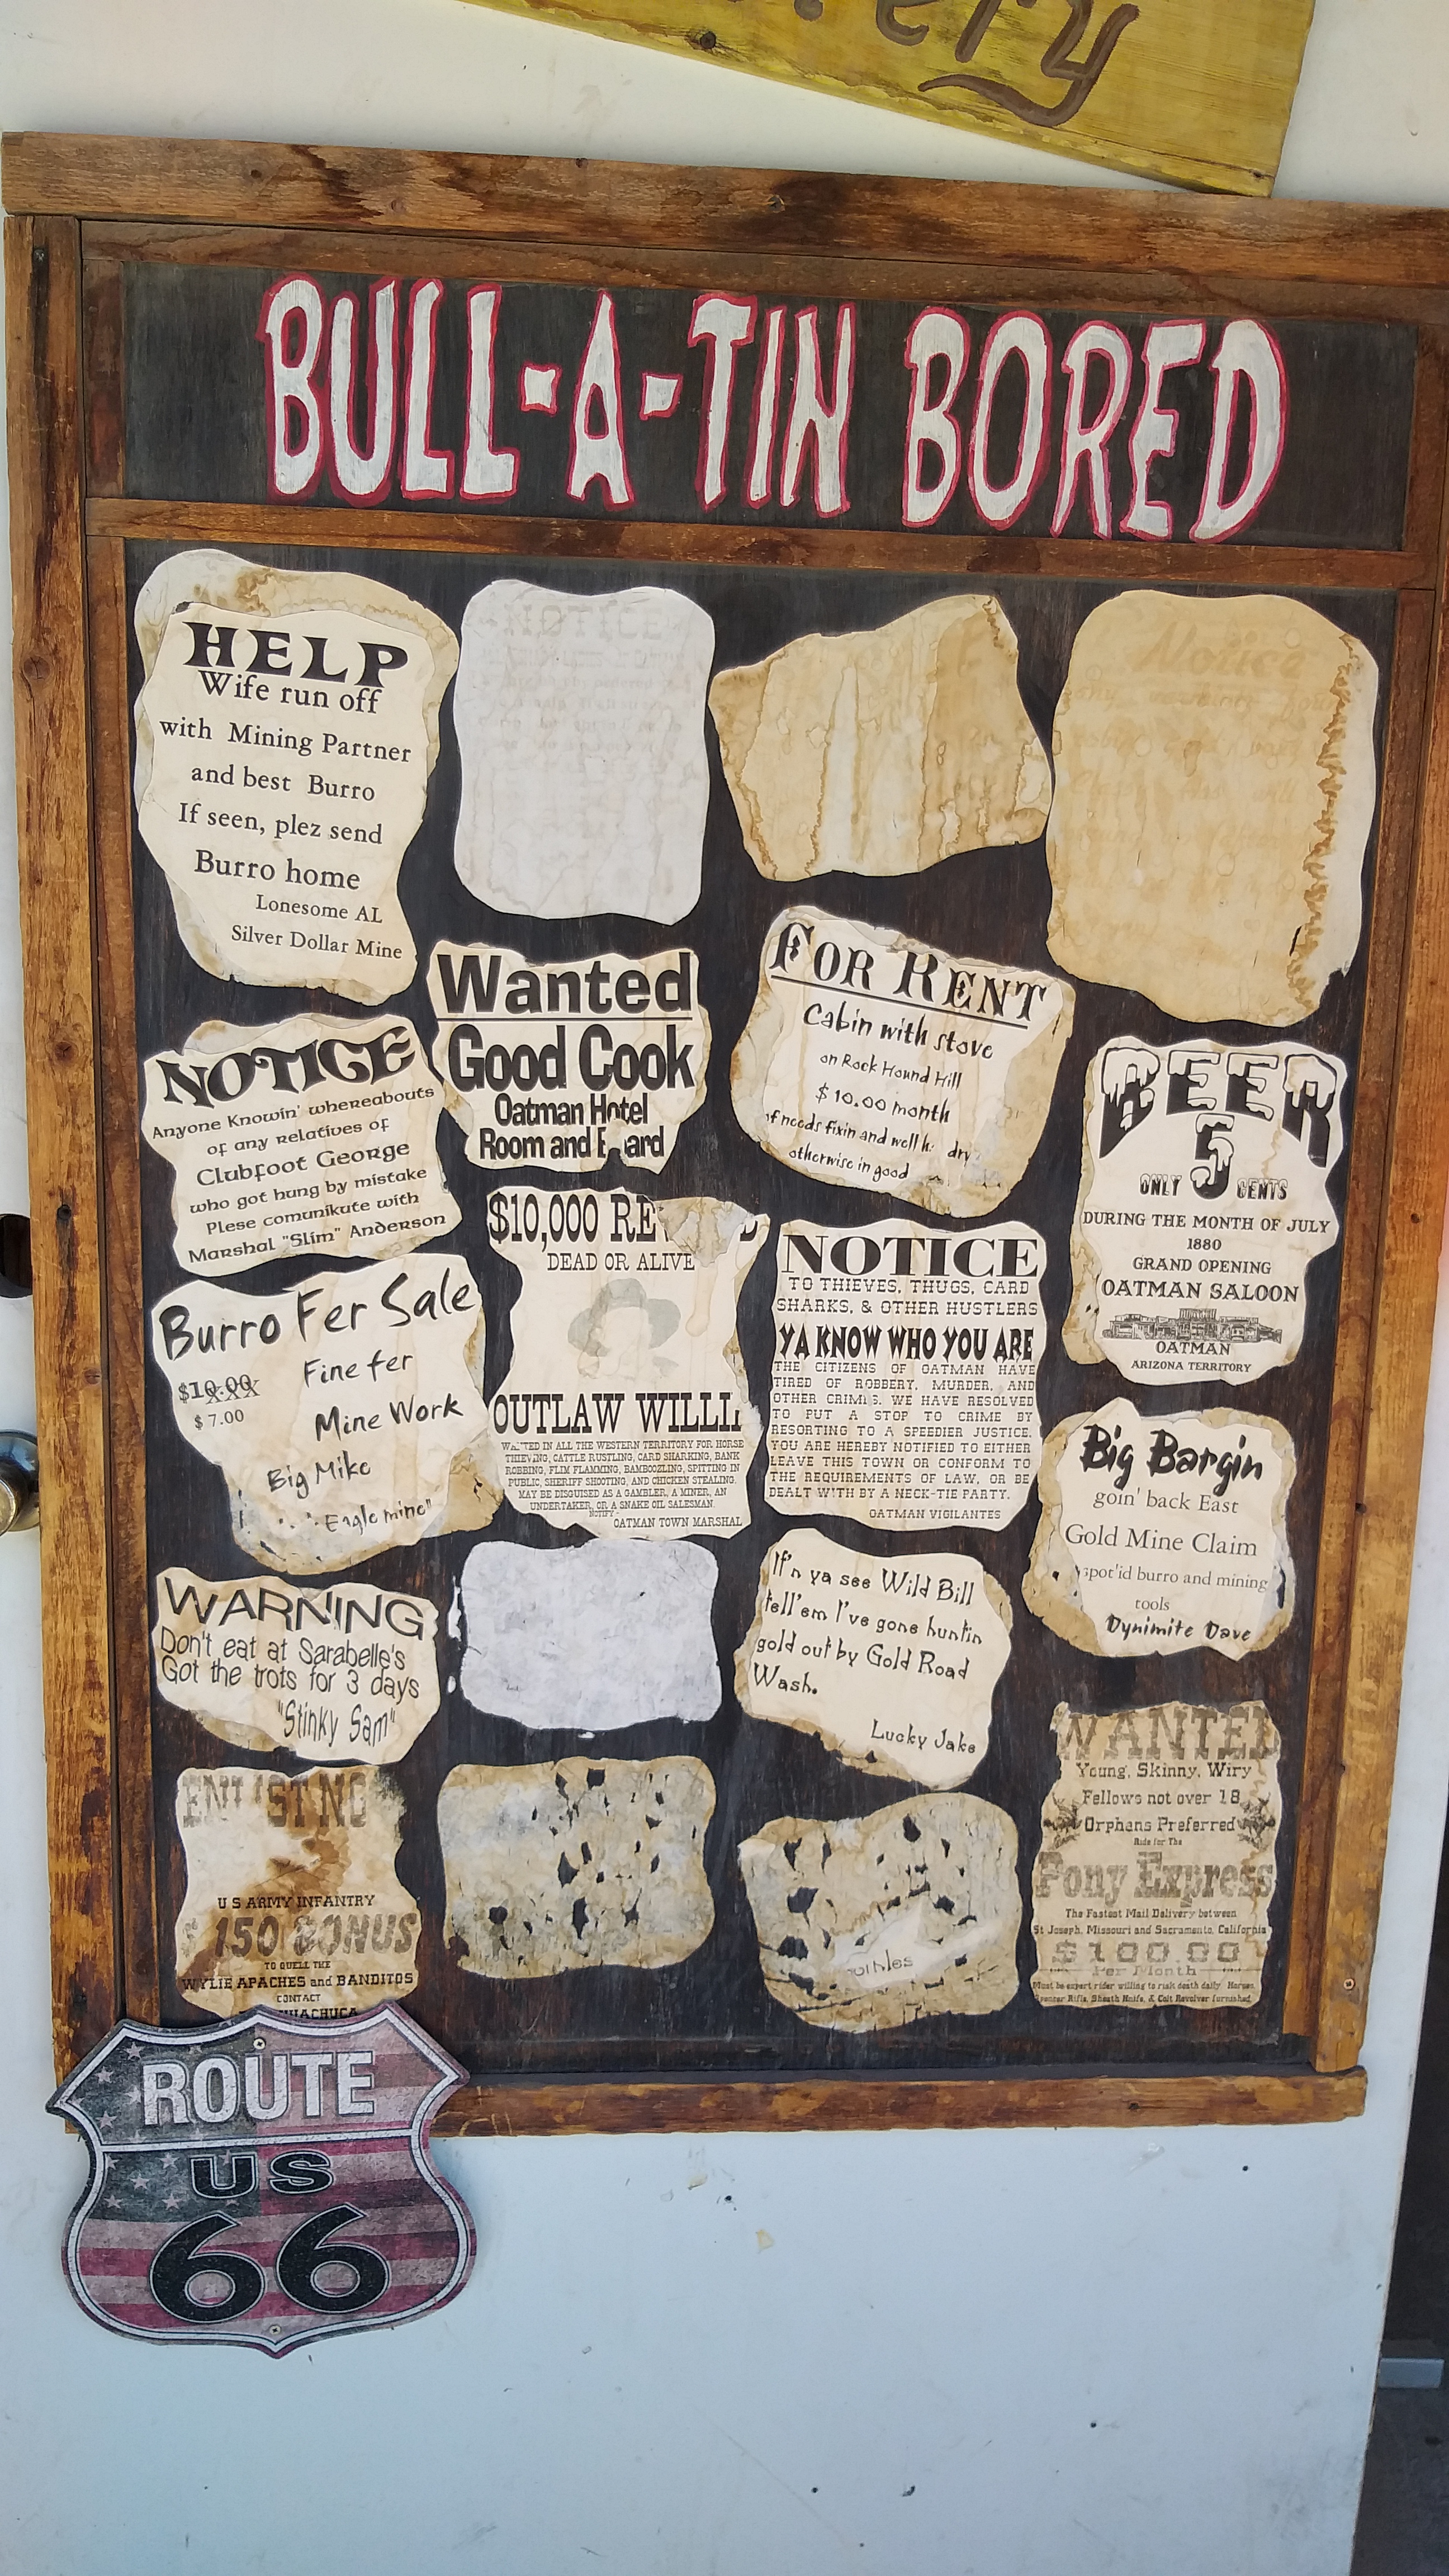 BULL-A-TIN BORED
HELP
Wife run off
with Mining Partner
and best Burro
If seen, plez send
Burro home
Lonesome AL
Silver Dollar Mine
NOTICE
Notice
Wanted
Good Cook
Oatman Hotel
Room and
FOR RENT
Cabin with stove
on Rock Hound Hill
$10.00 month
needs fixin and well
dry
otherwise in good
NOTICE
Anyone Knowin' whereabouts
of any relatives of
Clubfoot George
who got hung by mistake
Plese comunikute with
Marshal "Slim" Anderson
BEER
5
ONLY CENTS
DURING THE MONTH OF JULY
1880
GRAND OPENING
OATMAN SALOON
OATMAN
ARIZONA TERRITORY
$10,000
DEAD OR ALIVE
OUTLAW
WANTED IN ALL THE WESTERN TERRITORY FOR HORSE
THIEVING, CATTLE RUSTLING, CARD SHARKING, BANK
ROBBING, FLIM FLAMMING, BAMBOOZLING, SPITTING IN
PUBLIC, SHERIFF SHOOTING, AND CHICKEN STEALING.
MAY BE DISGUISED AS A GAMBLER, A MINER, AN
UNDERTAKER, OR A SNAKE OIL SALESMAN.
NOTIFY:
OATMAN TOWN MARSHAL
NOTICE
TO THIEVES, THUGS, CARD
SHARKS, & OTHER HUSTLERS
YA KNOW WHO YOU ARE
THE CITIZENS OF OATMAN HAVE
TIRED OF ROBBERY, MURDER, AND
OTHER CRIMES. WE HAVE RESOLVED
TO PUT A STOP TO CRIME BY
RESORTING TO A SPEEDIER JUSTICE.
YOU ARE HEREBY NOTIFIED TO EITHER
LEAVE THIS TOWN OR CONFORM TO
THE REQUIREMENTS OF LAW, OR BE
DEALT WITH BY A NECK-TIE PARTY.
OATMAN VIGILANTES
Burro Fer Sale
$10.00 XXX
$7.00
Fine fer
Mine Work
Big Mike
Eagle mine"
Big Bargin
goin' back East
Gold Mine Claim
spot'id burro and mining
tools
Dynimite Dave
WARNING
Don't eat at Sarabelle's
Got the trots for 3 days
"Stinky Sam"
If'n ya see Wild Bill
tell'em I've gone huntin
gold out by Gold Road
Wash.
Lucky Jake
ENLIST NO
U S ARMY INFANTRY
150 BONUS
TO QUELL THE
WYLIE APACHES and BANDITOS
CONTACT
HUACHUCA
WANTED
Young, Skinny, Wiry
Fellows not over 18
Orphans Preferred
Ride for The
Pony Express
The Fastest Mail Delivery between
St Joseph, Missouri and Sacramento, California
$100.00
Per Month
Must be expert rider willing to risk death daily. Horses,
Spencer Rifle, Sheath Knife, & Colt Revolver furnished.
ROUTE
US
66